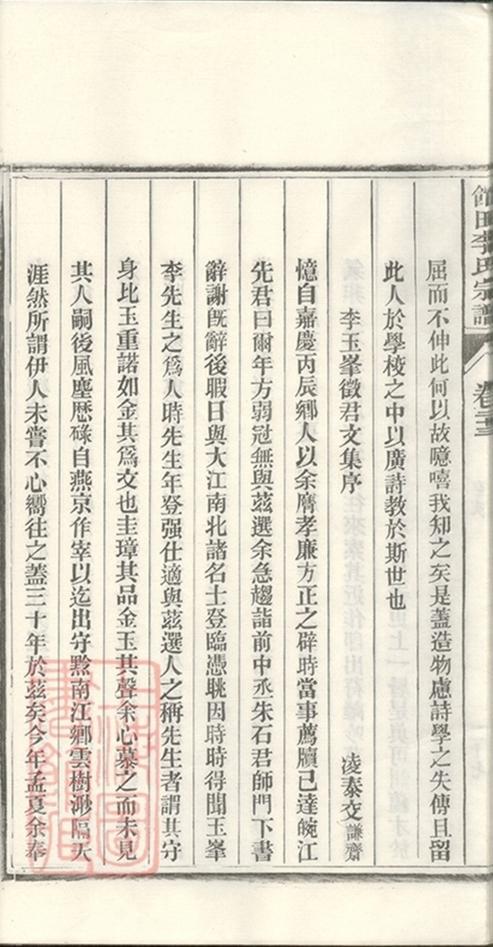 館田李氏宗譜 卷三三
屈而不伸此何以故噫嘻我知之矣是蓋造物慮詩學之失傳且留
此人於學校之中以廣詩教於斯世也
李玉峯徵君文集序
凌泰交謙齋
憶自嘉慶丙辰鄉人以余膺孝廉方正之辟時當事薦牘已達皖江
先君曰爾年方弱冠無與茲選余急趨詣前中丞朱石君師門下書
辭謝旣辭後暇日與大江南北諸名士登臨憑眺因時時得聞玉峯
李先生之爲人時先生年登强仕適與茲選人之稱先生者謂其守
身比玉重諾如金其爲交也圭璋其品金玉其聲余心慕之而未見
其人嗣後風塵歷碌自燕京作宰以迄出守黔南江鄉雲樹渺隔天
涯然所謂伊人未嘗不心嚮往之蓋三十年於茲矣今年孟夏余奉